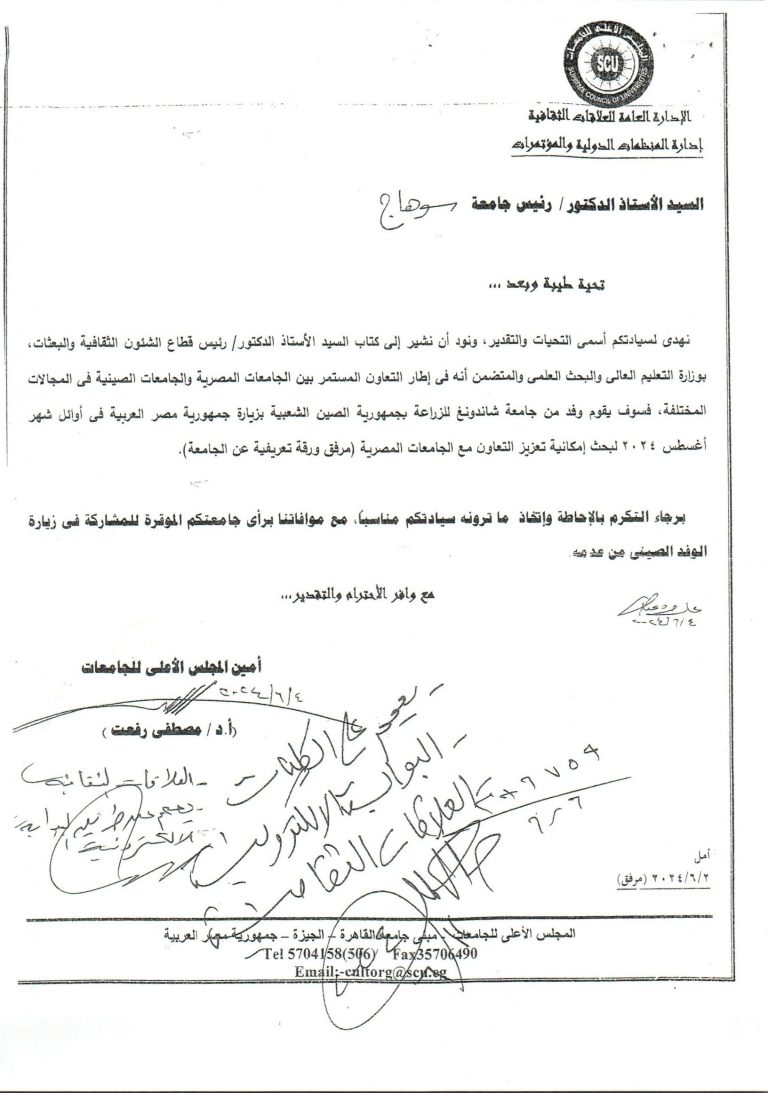 المجلس الأعلى للجامعات
SCU
SUPREME COUNCIL OF UNIVERSITIES
الإدارة العامة للعلاقات الثقافية
إدارة المنظمات الدولية والمؤتمرات
السيد الأستاذ الدكتور/ رئيس جامعة سوهاج
تحية طيبة وبعد ...
نهدى لسيادتكم أسمى التحيات والتقدير، ونود أن نشير إلى كتاب السيد الأستاذ الدكتور/ رئيس قطاع الشئون الثقافية والبعثات،
بوزارة التعليم العالى والبحث العلمى والمتضمن أنه فى إطار التعاون المستمر بين الجامعات المصرية والجامعات الصينية فى المجالات
المختلفة، فسوف يقوم وفد من جامعة شاندونغ للزراعة بجمهورية الصين الشعبية بزيارة جمهورية مصر العربية فى أوائل شهر
أغسطس ٢٠٢٤ لبحث إمكانية تعزيز التعاون مع الجامعات المصرية (مرفق ورقة تعريفية عن الجامعة).
برجاء التكرم بالإحاطة وإتخاذ ما ترونه سيادتكم مناسباً، مع موافاتنا برأى جامعتكم الموقرة للمشاركة فى زيارة
الوفد الصينى من عدمه.
مع وافر الأحترام والتقدير...
٢٠٢٤/٦/٤
أمين المجلس الأعلى للجامعات
٢٠٢٤/٦/٤
(أ.د/ مصطفى رفعت)
- يعمم على الكليات
- البوابة الالكترونية
- العلاقات الثقافية
- العلاقات الثقافية
- يعمم
الالكترونية
٦/٦
أمل
٢٠٢٤/٦/٢ (مرفق)
المجلس الأعلى للجامعات - مبنى جامعة القاهرة – الجيزة – جمهورية مصر العربية
Tel 5704158(506) Fax35706490
Email:-cultorg@scu.eg